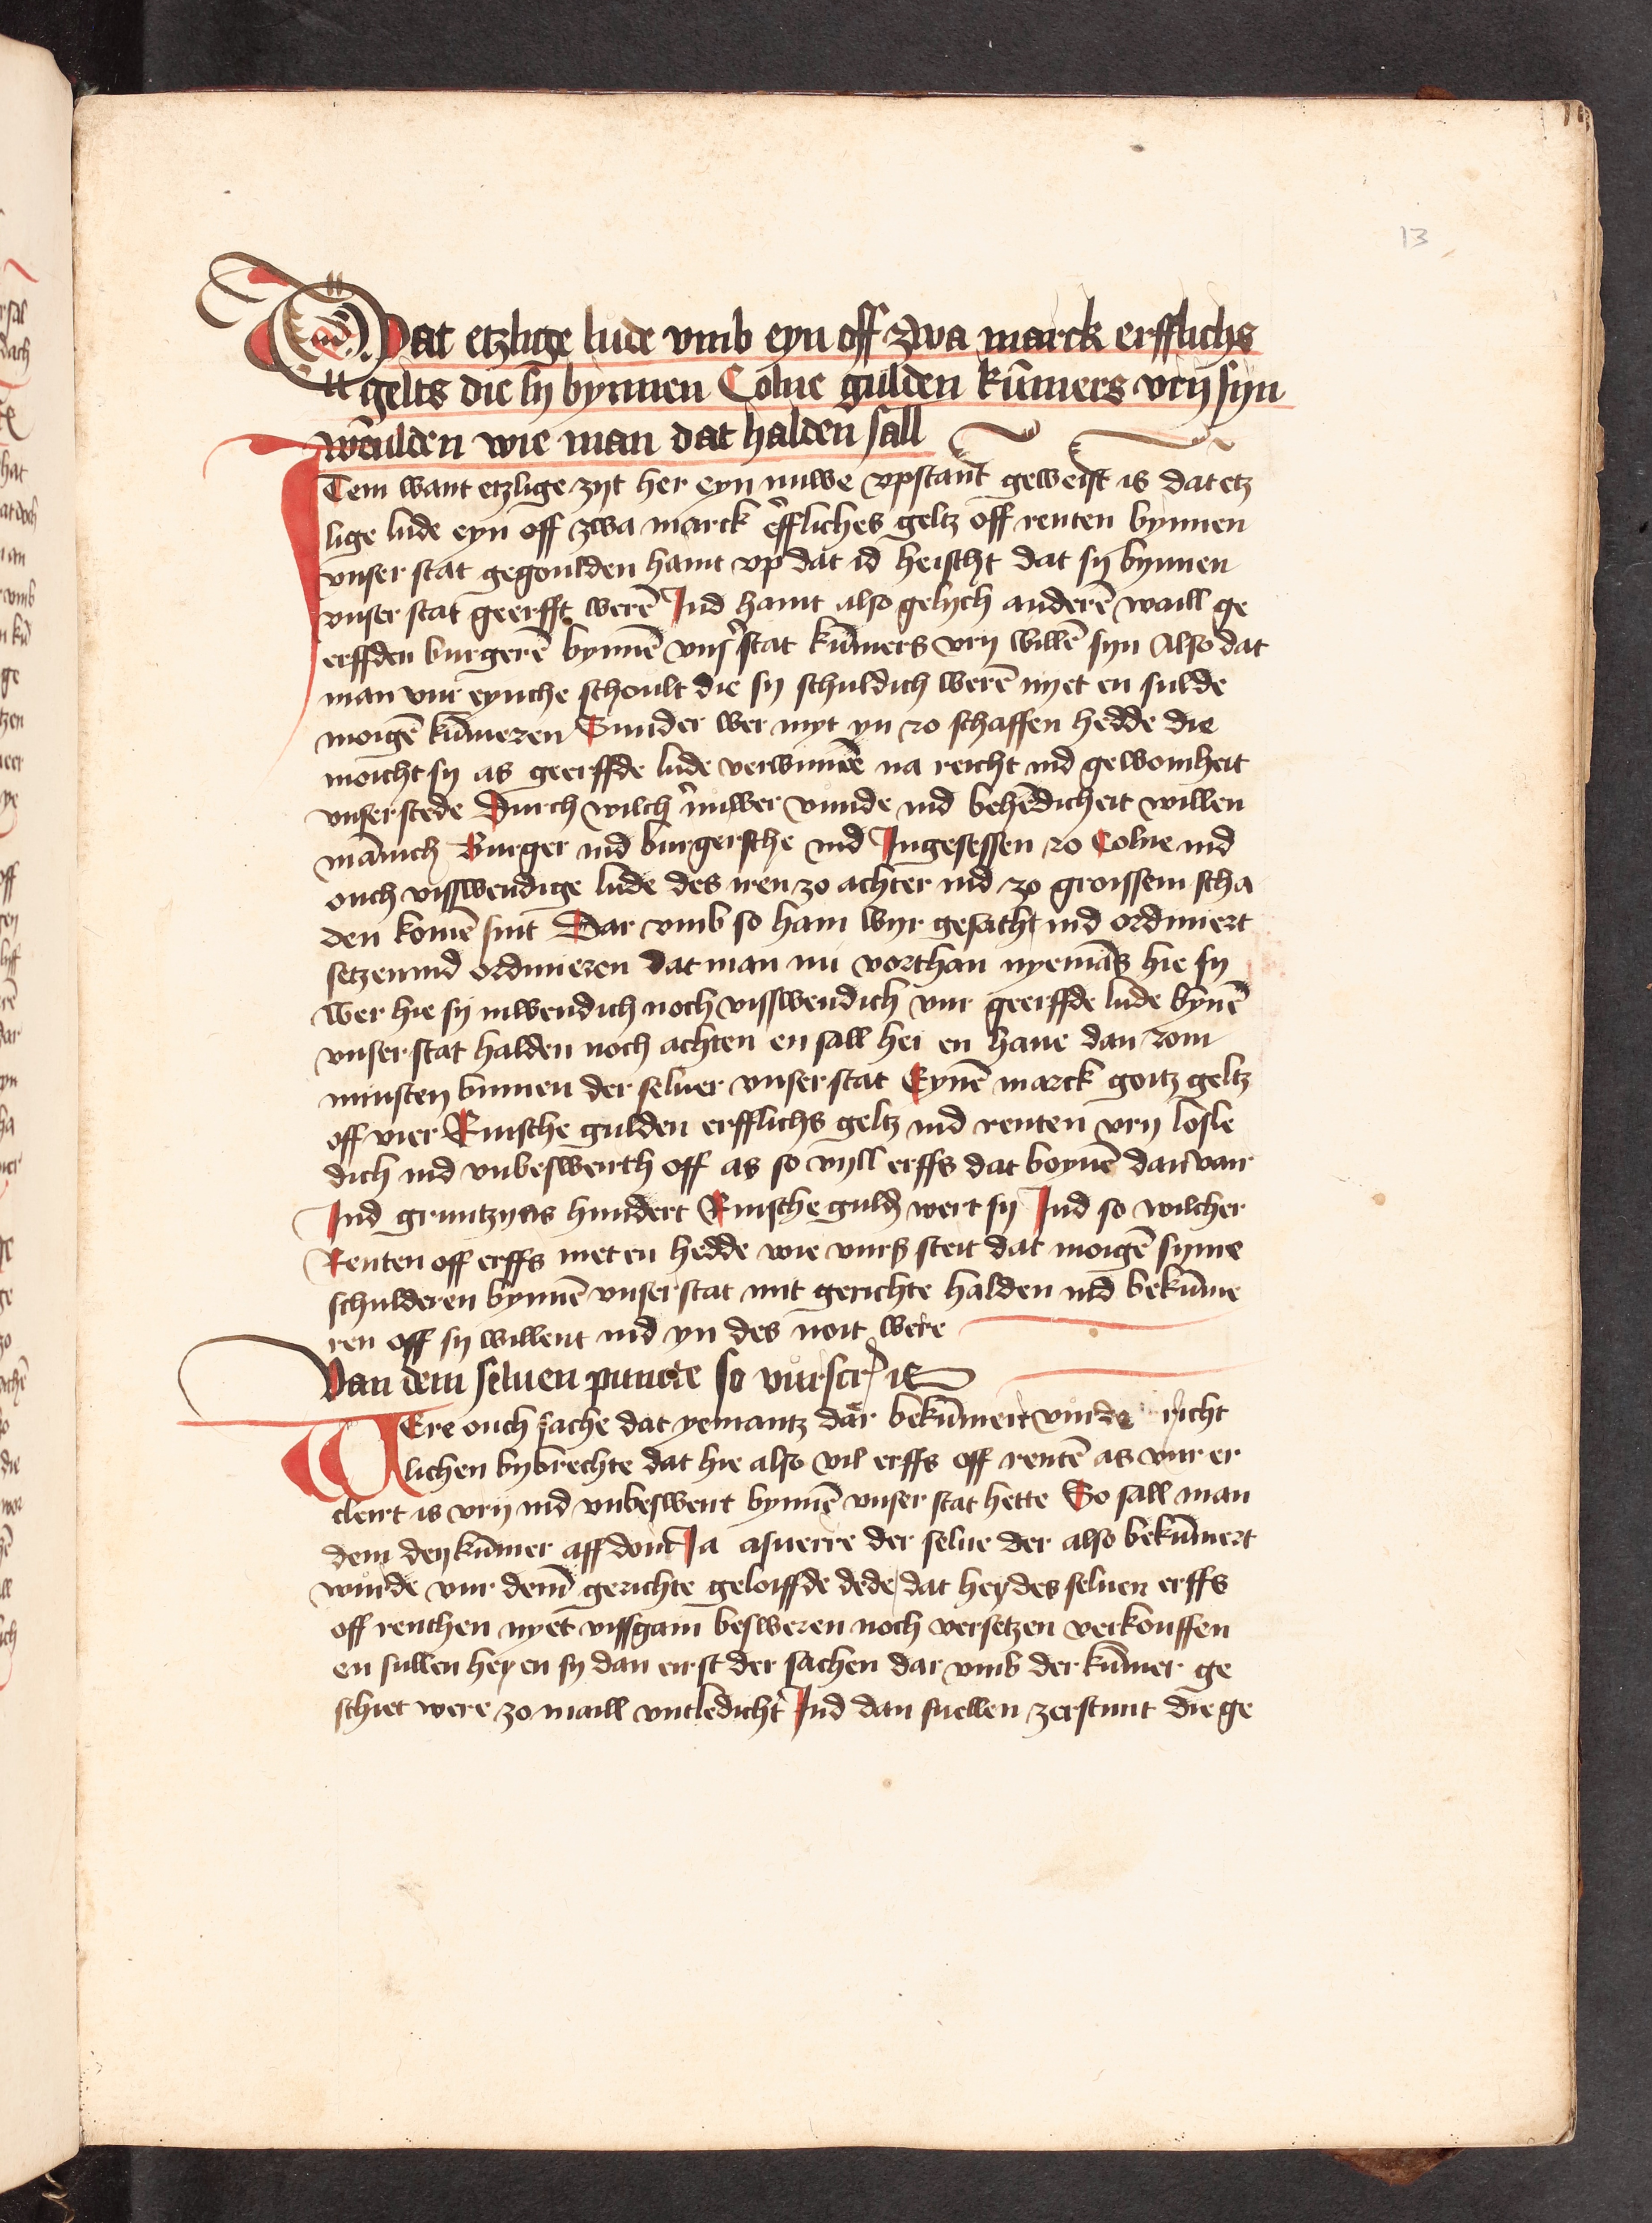 13
Dat etzlige lude vmb eyn off zwa marck erfflichs
gelts die sy bynnen Colne gulden kūmers vry syn
woulden wie man dat halden sall
Item want etzlige zyt her eyn nuwe vpstant geweist is dat etz
lige lude eyn off zwa marck erffliches geltz off renten bynnen
vnser stat gegoulden haint vp dat id heischt dat sy bynnen
vnser stat geerfft werē Ind haint also gelych anderē waill ge
erffden burgerē bynnē vnser stat kūmers vry willē syn Also dat
man vur eynche schoult die sy schuldich werē nyet en sulde
moigē kūmeren Sunder wer myt yn zo schaffen hedde die
moicht sy as geerffde lude verwinnē na reicht ind gewoinheit
vnser stede Durch wilch nuwer vunde ind behēdicheit willen
mānich Burger ind burgersche ind Ingesessen zo Colne ind
ouch visswendige lude des iren zo achter ind zo groissem scha
den komē sint Dar vmb so hain wyr gesacht ind ordiniert
setzen ind ordinieren dat man nu vorthan nyemās hie sy
wer hie sy inwendich noch visswendich vur geerffde lude bynē
vnser stat halden noch achten en sall hei en haue dan zom
minsten binnen der seluer vnser stat Eynē marck goitz geltz
off vier Rinsche gulden erfflichs geltz ind renten vry losle
dich ind vnbeswerith off as so vyll erffs dat boynē dan van
Ind gruntzyns hundert Rinsche guldē wert sy Ind so wilcher
Renten off erffs niet en hedde wie vurß steit dat moigē syme
schulderen bynnē vnser stat mit gerichte halden ind bekūme
ren off sy willent ind yn des noit were
Van dem seluen puncte so vurscr is
WEre ouch sache dat yemantz dar bekūmert wurde richt
lichen bybrechte dat hie also vil erffs off rentē as vur er
cleirt is vry ind vnbeswert bynnē vnser stat hette So sall man
dem den kūmer aff doin Ja asuerre der selue der also bekūmert
wurde vur dem gerichte geloiffde dede dat hey des seluen erffs
off renthen nyet vissgain besweren noch versetzen verkouffen
en sullen hey en sy dan eirst der sachen dar vmb der kūmer ge
schiet were zo maill vntledicht Ind dan suellen zerstunt die ge